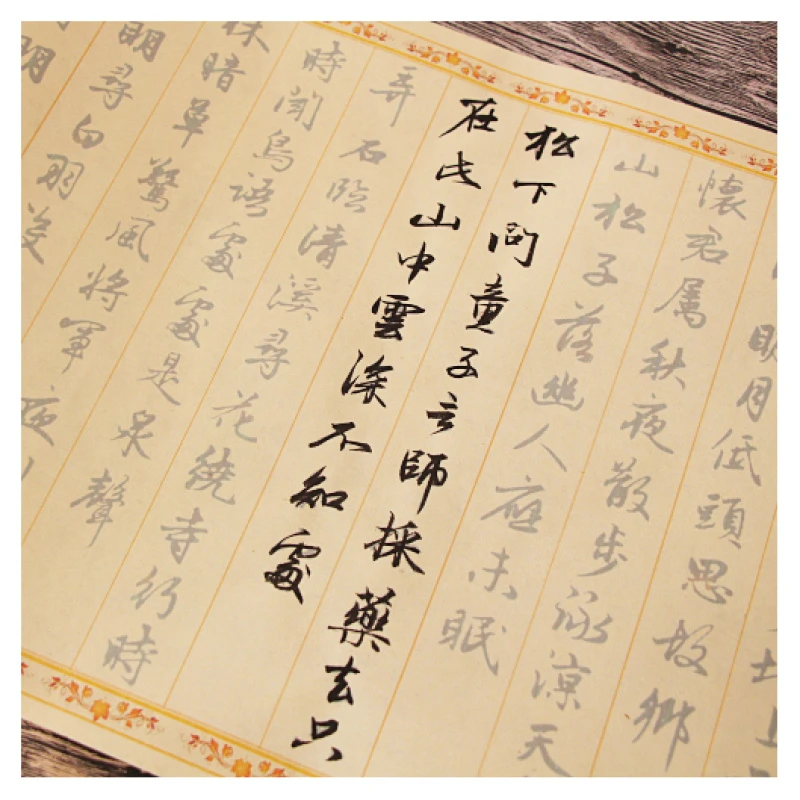 明月低頭思故鄉
懷君屬秋夜散步詠涼天
山松子落幽人應未眠
松下問童子言師採藥去只
在此山中雲深不知處
弄石臨清溪尋花繞寺行時
時聞鳥語處處是泉聲
林暗草驚風將軍夜
明尋白羽